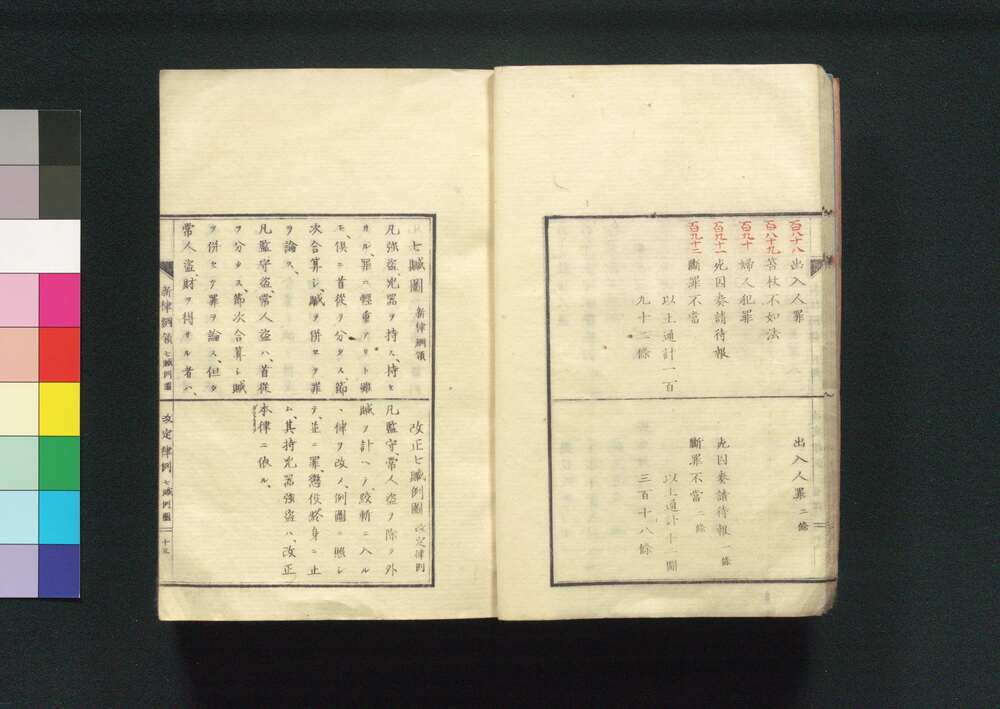 百八十八 出入人罪
百八十九 笞杖不如法
百九十 婦人犯罪
百九十一 死囚奏請待報
百九十二 斷罪不當
以上通計一百
九十二條
出入人罪 二條
死囚奏請待報 一條
斷罪不當 二條
以上通計十二圖
三百十八條
七贓圖 新律綱領
凡強盗、兇器ヲ持ス、持セ
サル、罪ニ輕重アリト雖
モ、倶ニ首從ヲ分タス、節
次合算シ、贓ヲ併セテ罪
ヲ論ス、
凡監守盗、常人盗ハ、首從
ヲ分タス、節次合算シ、贓
ヲ併セテ罪ヲ論ス、但タ
常人盗、財ヲ得サル者ハ、
改正七贓例圖 改定律例
凡監守、常人盗ヲ除ク外
贓ヲ計ヘ、絞斬ニ入ル
、律ヲ改メ、例圖ニ照シ
テ、並ニ罪、懲役終身ニ止
ム、其持兇器強盗ハ、改正
本律ニ依ル、
新律綱領 七贓例圖
改定律例 七贓例圖
十三